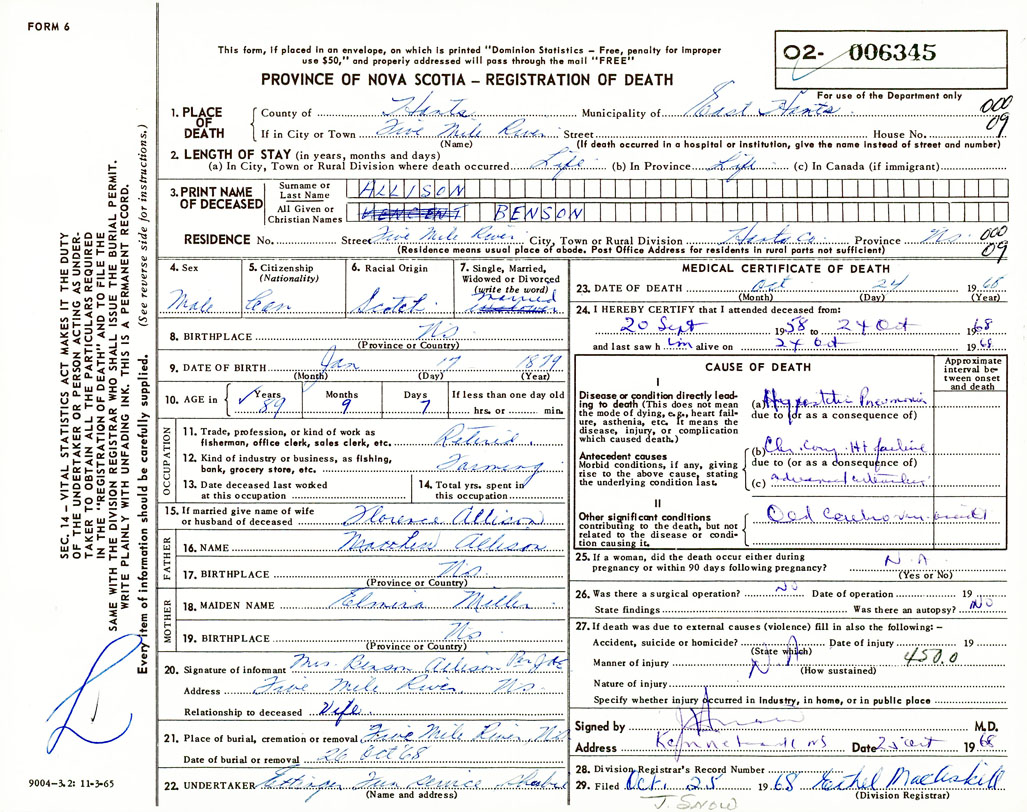 FORM 6
This form, if placed in an envelope, on which is printed "Dominion Statistics – Free, penalty for improper
use $50," and properly addressed will pass through the mail "FREE"
PROVINCE OF NOVA SCOTIA – REGISTRATION OF DEATH
02- 006345
For use of the Department only
000
09
1. PLACE OF DEATH
County of Hants Municipality of East Hants
If in City or Town Five Mile River Street House No.
(Name) (If death occurred in a hospital or institution, give the name instead of street and number)
2. LENGTH OF STAY (in years, months and days)
(a) In City, Town or Rural Division where death occurred Life (b) In Province Life (c) In Canada (if immigrant)
3. PRINT NAME OF DECEASED
Surname or Last Name ALLISON
All Given or Christian Names BENSON
RESIDENCE No. Street Five Mile River City, Town or Rural Division Hants Co. Province NS.
(Residence means usual place of abode. Post Office Address for residents in rural parts not sufficient)
000
09
4. Sex
Male
5. Citizenship
(Nationality)
Can
6. Racial Origin
Scotch
7. Single, Married,
Widowed or Divorced
(write the word)
Married
8. BIRTHPLACE NS
(Province or Country)
9. DATE OF BIRTH Jan 17 1879
(Month) (Day) (Year)
10. AGE in
Years 89
Months 9
Days 7
If less than one day old
hrs. or min.
OCCUPATION
11. Trade, profession, or kind of work as
fisherman, office clerk, sales clerk, etc. Retired.
12. Kind of industry or business, as fishing,
bank, grocery store, etc. Farming
13. Date deceased last worked
at this occupation
14. Total yrs. spent in
this occupation
15. If married give name of wife
or husband of deceased Florence Allison
FATHER
16. NAME Allison
17. BIRTHPLACE NS.
(Province or Country)
MOTHER
18. MAIDEN NAME Elmira Miller
19. BIRTHPLACE NS
(Province or Country)
20. Signature of informant Mrs. Benson Allison Per
Address Five Mile River, NS.
Relationship to deceased Wife.
21. Place of burial, cremation or removal Five Mile River, NS
Date of burial or removal 26 Oct '68
22. UNDERTAKER Fun service
(Name and address)
MEDICAL CERTIFICATE OF DEATH
23. DATE OF DEATH Oct 24 1968
(Month) (Day) (Year)
24. I HEREBY CERTIFY that I attended deceased from:
20 Sept 1958 to 24 Oct 1968
and last saw him alive on 24 Oct 1968
CAUSE OF DEATH
Approximate
interval be-
tween onset
and death
I
Disease or condition directly lead-
ing to death (This does not mean
the mode of dying, e.g., heart fail-
ure, asthenia, etc. It means the
disease, injury, or complication
which caused death.)
(a) Hypostatic Pneumonia
due to (or as a consequence of)
Antecedent causes
Morbid conditions, if any, giving
rise to the above cause, stating
the underlying condition last.
(b) Chr. Cong. Ht failure
due to (or as a consequence of)
(c) advanced
II
Other significant conditions
contributing to the death, but not
related to the disease or condi-
tion causing it.
Old
25. If a woman, did the death occur either during
pregnancy or within 90 days following pregnancy? N.A
(Yes or No)
26. Was there a surgical operation? NO Date of operation 19
State findings Was there an autopsy? NO
27. If death was due to external causes (violence) fill in also the following: –
Accident, suicide or homicide? Date of injury 19
(State which)
Manner of injury N.A 450.0
(How sustained)
Nature of injury
Specify whether injury occurred in industry, in home, or in public place
Signed by M.D.
Address NS Date 25 Oct 1968
28. Division Registrar's Record Number
29. Filed Oct. 25 1968 Ethel MacAskill
(Division Registrar)
J. Snow
SEC. 14 – VITAL STATISTICS ACT MAKES IT THE DUTY
OF THE UNDERTAKER OR PERSON ACTING AS UNDER-
TAKER TO OBTAIN ALL THE PARTICULARS REQUIRED
IN THE "REGISTRATION OF DEATH" AND TO FILE THE
SAME WITH THE DIVISION REGISTRAR WHO SHALL ISSUE THE BURIAL PERMIT.
WRITE PLAINLY WITH UNFADING INK. THIS IS A PERMANENT RECORD.
Every item of information should be carefully supplied. (See reverse side for instructions.)
9004-3.2: 11-3-65